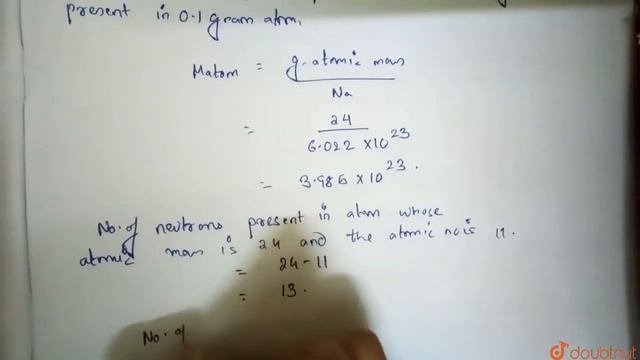 present in 0.1 gram atom,
Matom = g.atomic mass
Na
= 24
6.022 ×10²³
= 3.985 ×10²³.
No. of neutrons present in atom whose
atomic mass is 24 and the atomic no is 11.
= 24-11
= 13.
No. of
doubtnut